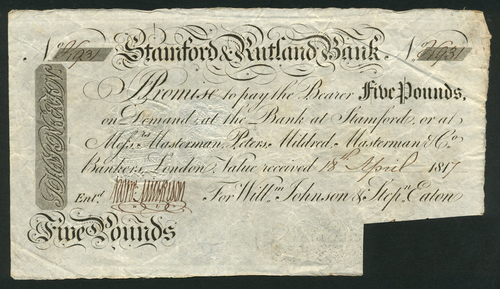 Stamford & Rutland Bank
I Promise to pay the Bearer Five Pounds,
on Demand, at the Bank at Stamford, or at
Mess.rs Masterman, Peters, Mildred, Masterman & C.o
Bankers, London, Value received 18th April 1817
Ent.d For Will.m Johnson & Step.n Eaton
Five Pounds